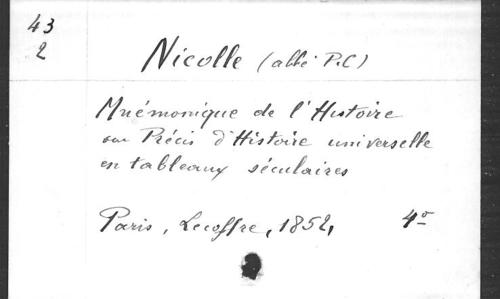 43
2
Nicolle (abbé P.C)
Mnémonique de l'Histoire
ou Précis d'Histoire universelle
en tableaux séculaires
Paris, Lecoffre, 1852, 4°